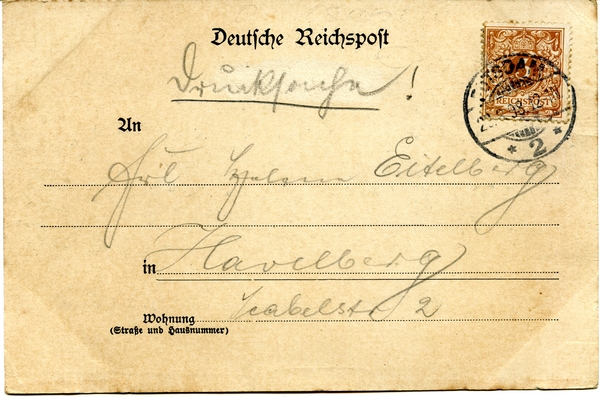 Deutsche Reichspost
Drucksache!
REICHSPOST
2
An
Frl Helene Eitelberg
in Havelberg
2
Wohnung
(Straße und Hausnummer)